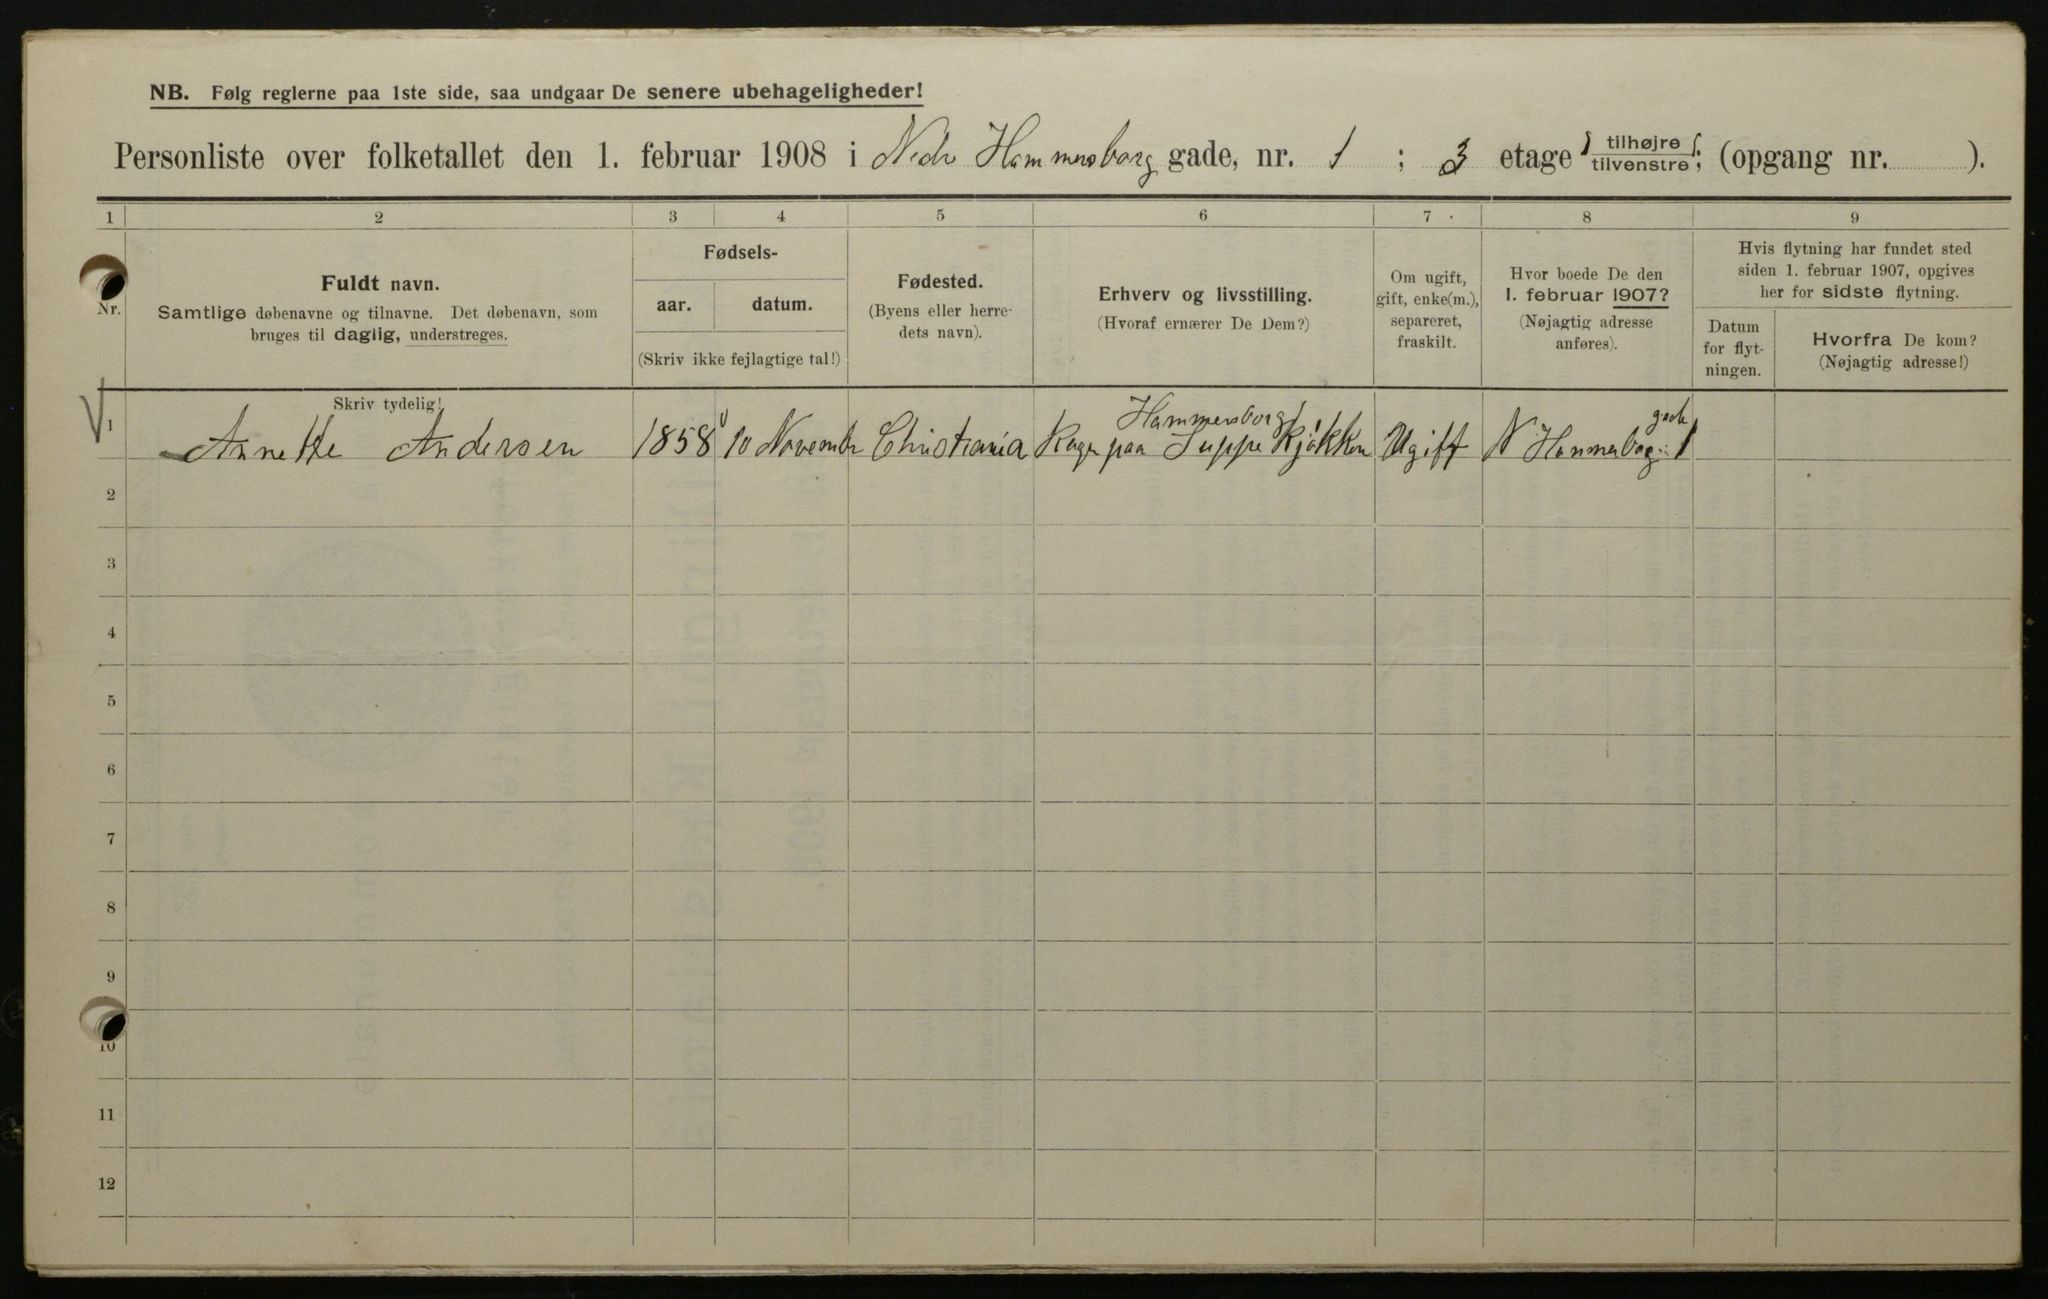 NB. Følg reglerne paa 1ste side, saa undgaar De senere ubehageligheder!
Personliste over folketallet den 1. februar 1908 i Nedr Hammersborg gade, nr. 1 ; 3 etage tilhøjre tilvenstre; (opgang nr. ).
1 2 3 4 5 6 7 8 9
Nr.
Fuldt navn.
Samtlige døbenavne og tilnavne. Det døbenavn, som
bruges til daglig, understreges.
Skriv tydelig!
Fødsels-
aar. datum.
(Skriv ikke fejlagtige tal!)
Fødested.
(Byens eller herre-
dets navn).
Erhverv og livsstilling.
(Hvoraf ernærer De Dem?)
Om ugift,
gift, enke(m.),
separeret,
fraskilt.
Hvor boede De den
1. februar 1907?
(Nøjagtig adresse
anføres).
Hvis flytning har fundet sted
siden 1. februar 1907, opgives
her for sidste flytning.
Datum
for flyt-
ningen.
Hvorfra De kom?
(Nøjagtig adresse!)
Hammersborg gade
1 Annette Andersen 1858 10 November Christiania paa Suppe Kjøkken Ugift N Hammerborg 1
2
3
4
5
6
7
8
9
10
11
12